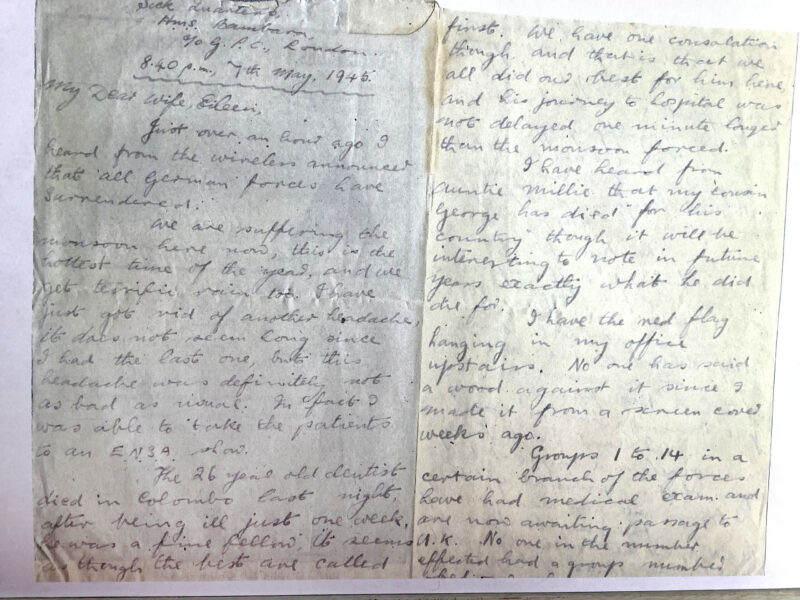 Sick Quarters,
Hms. Bambara,
c/o G.P.O., London.
8.40 p.m., 7th May, 1945.
My Dear Wife, Eileen,
Just over an hour ago I
heard from the wireless announced
that all German forces have
Surrendered.
We are suffering the
monsoon here now, this is the
hottest time of the year, and we
get terrific rain too. I have
just got rid of another headache,
it does not seem long since
I had the last one, but this
headache was definitely not
as bad as usual. In fact I
was able to take the patients
to an E.N.S.A. show.
The 26 year old dentist
died in Colombo last night,
after being ill just one week,
he was a fine fellow, it seems
as though the best are called
first. We have one consolation
though and that is that we
all did our best for him here
and his journey to hospital was
not delayed one minute longer
than the monsoon forced.
I have heard from
Auntie Millie that my cousin
George has died "for his
country" though it will be
interesting to note in future
years exactly what he did
die for.
I have the red flag
hanging in my office
upstairs. No one has said
a word against it since I
made it from a screen cover
weeks ago.
Groups 1 to 14 in a
certain branch of the forces
have had medical exam. and
are now awaiting passage to
U.K. No one in the number
effected had a group number